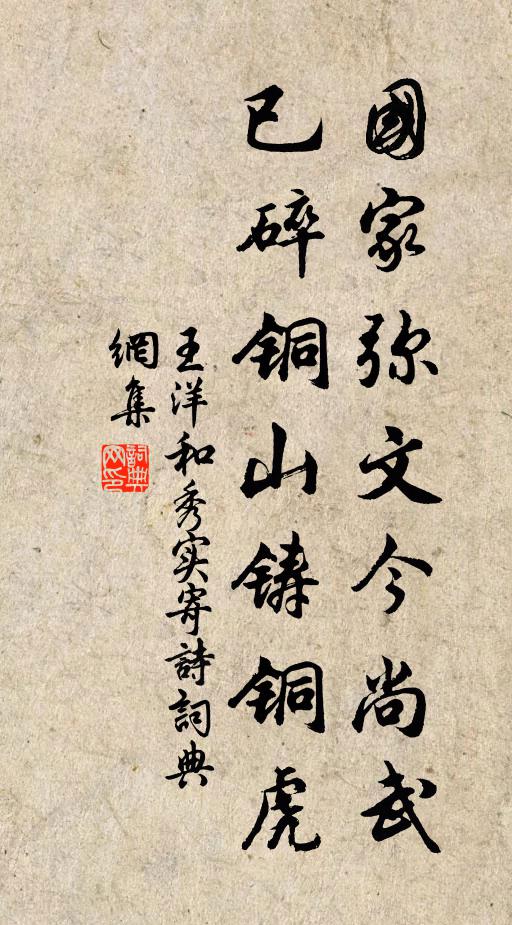 國家弥文今尚武
已碎铜山铸铜虎
王洋和秀实寄詩詞典
網集
詞典
网印